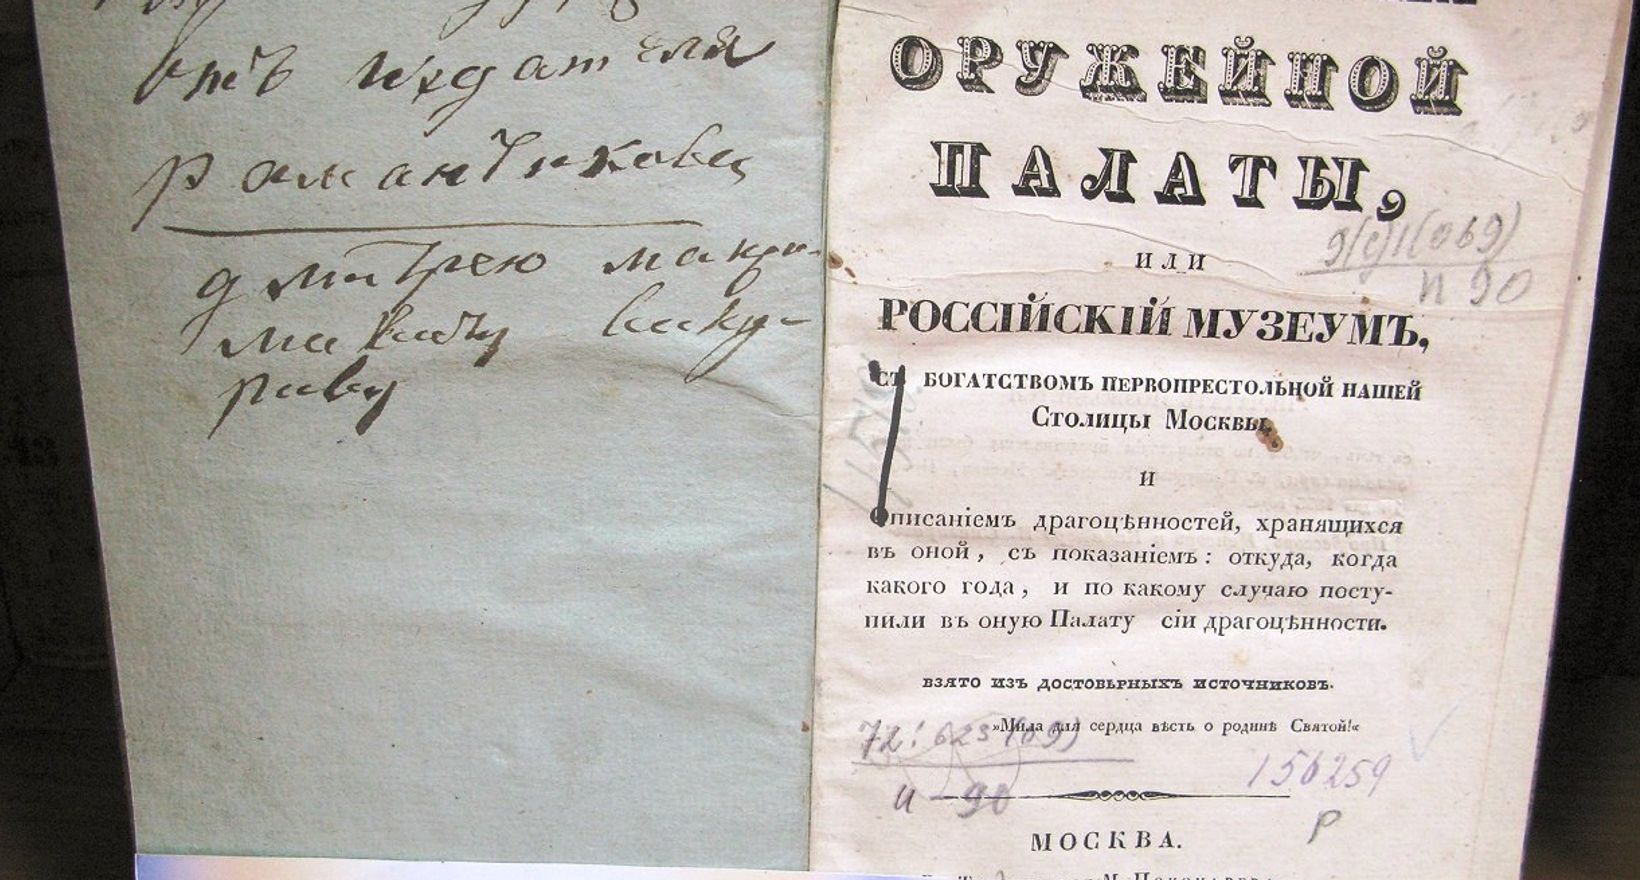 отъ издателя
романчикова
дмитрею макри-
маковичу вику-
раву
ОРУЖЕЙНОЙ
ПАЛАТЫ,
9(с)1(069)
П 90
ИЛИ
РОССІЙСКІЙ МУЗЕУМЪ,
СЪ БОГАТСТВОМЪ ПЕРВОПРЕСТОЛЬНОЙ НАШЕЙ
Столицы Москвы,
И
Описаніемъ драгоцѣнностей, хранящихся
въ оной, съ показаніемъ: откуда, когда
какого года, и по какому случаю посту-
пили въ оную Палату сіи драгоцѣнности.
ВЗЯТО ИЗЪ ДОСТОВѢРНЫХЪ ИСТОЧНИКОВЪ.
»Мила для сердца вѣсть о родинѣ Святой!«
72:623(09)
и-90
156259
Р
МОСКВА.